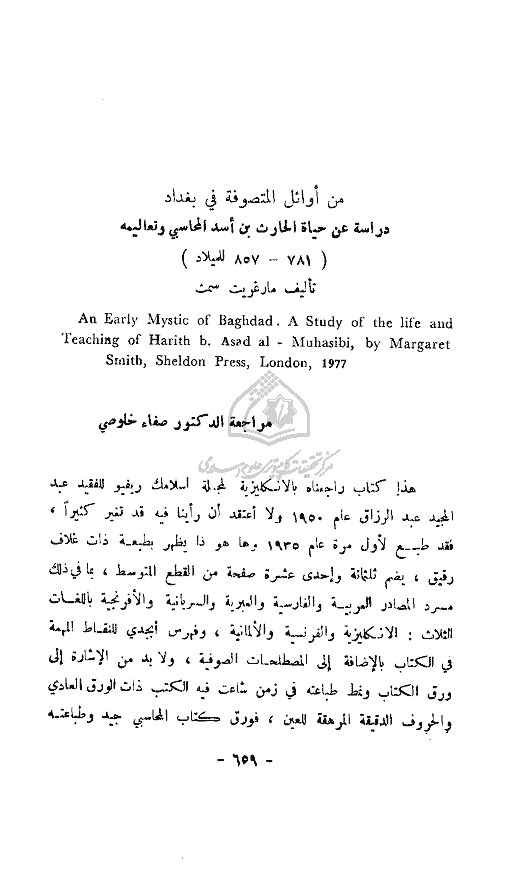 من أوائل المتصوفة في بغداد
دراسة عن حياة الحارث بن أسد المحاسبي وتعاليمه
( ٧٨١ - ٨٥٧ للميلاد )
تأليف مارغريت سمث
An Early Mystic of Baghdad. A Study of the life and
Teaching of Harith b. Asad al - Muhasibi, by Margaret
Smith, Sheldon Press, London, 1977
مراجعة الدكتور صفاء خلوصي
مرکز تحقیقات کامپیوتری علوم اسلامی
هذا كتاب راجعناه بالانكليزية لمجلة اسلامك ريفيو للفقيد عبد
المجيد عبد الرزاق عام ١٩٥٠ ولا أعتقد أن رأينا فيه قد تغير كثيراً ،
فقد طبع لأول مرة عام ١٩٣٥ وها هو ذا يظهر بطبعة ذات غلاف
رقيق ، يضم ثلثمائة وإحدى عشرة صفحة من القطع المتوسط ، بما في ذلك
مسرد المصادر العربية والفارسية والعبرية والسريانية والأفرنجية باللغات
الثلاث : الانكليزية والفرنسية والألمانية ، وفهرس أبجدي للنقاط المهمة
في الكتاب بالإضافة إلى المصطلحات الصوفية ، ولا بد من الإشارة إلى
ورق الكتاب ونمط طباعته في زمن شاعت فيه الكتب ذات الورق العادي
والحروف الدقيقة المرهقة للعين ، فورق كتاب المحاسبي جيد وطباعته
- ٦٥٩ -